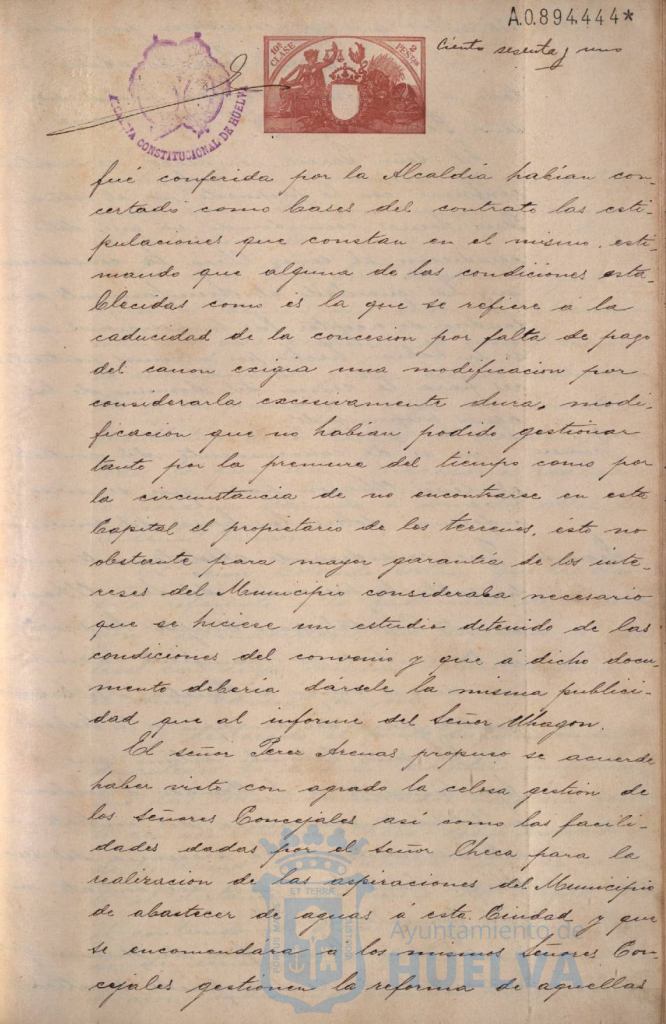 A.0.894,444*
10ª CLASE
2 PESTAS
Ciento sesenta y uno
ALCALDIA CONSTITUCIONAL DE HUELVA
fué conferida por la Alcaldia habian con-
certado como bases del contrato las esti-
pulaciones que constan en el mismo, esti-
mando que alguna de las condiciones esta-
blecidas como és la que se refiere á la
caducidad de la concesion por falta de pago
del canon exigia una modificacion por
considerarla excesivamente dura, modi-
ficacion que no habian podido gestionar
tanto por la premura del tiempo como por
la circunstancia de no encontrarse en esta
Capital el propietario de los terrenos, ésto no
obstante para mayor garantia de los inte-
reses del Municipio consideraba necesario
que se hiciese un estudio detenido de las
condiciones del convenio y que á dicho docu-
mento deberia dársele la misma publici-
dad que al informe del Señor Uhagon.
El señor Perez Arenas propuso se acuerde
haber visto con agrado la celosa gestion de
los Señores Concejales así como las facili-
dades dadas por el señor Checa para la
realizacion de las aspiraciones del Municipio
de abastecer de aguas á esta Ciudad y que
se encomendára á los mismos Señores Con-
cejales gestionen la reforma de aquellas
Ayuntamiento de
HUELVA